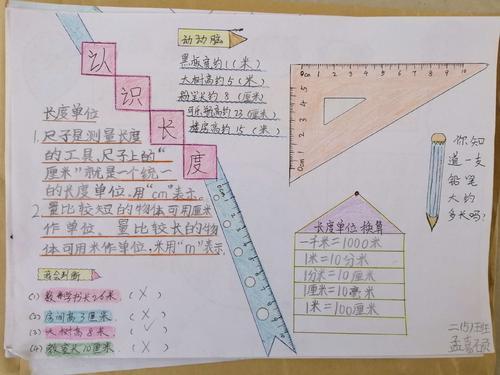 认识长度
动动脑
黑板宽约1（米）
大树高约5（米）
粉笔长约8（厘米）
可乐瓶高约23（厘米）
楼房高约15（米）
长度单位
1.尺子是测量长度
的工具，尺子上的“
厘米”就是一个统一
的长度单位，用“cm”表示。
2.量比较短的物体可用厘米
作单位。量比较长的物
体可用米作单位，米用“m”表示
我会判断
(1)数学书长26米（×）
(2)房间高3厘米（×）
(3)大树高8米（✓）
(4)教室长10厘米（×）
0cm 1 2 3 4 5 6 7 8 9 10
长度单位换算
一千米=1000米
1米=10分米
1分米=10厘米
1厘米=10毫米
1米=100厘米
你知
道一支
铅笔
大约
多长吗？
二(5)班
孟嘉硕